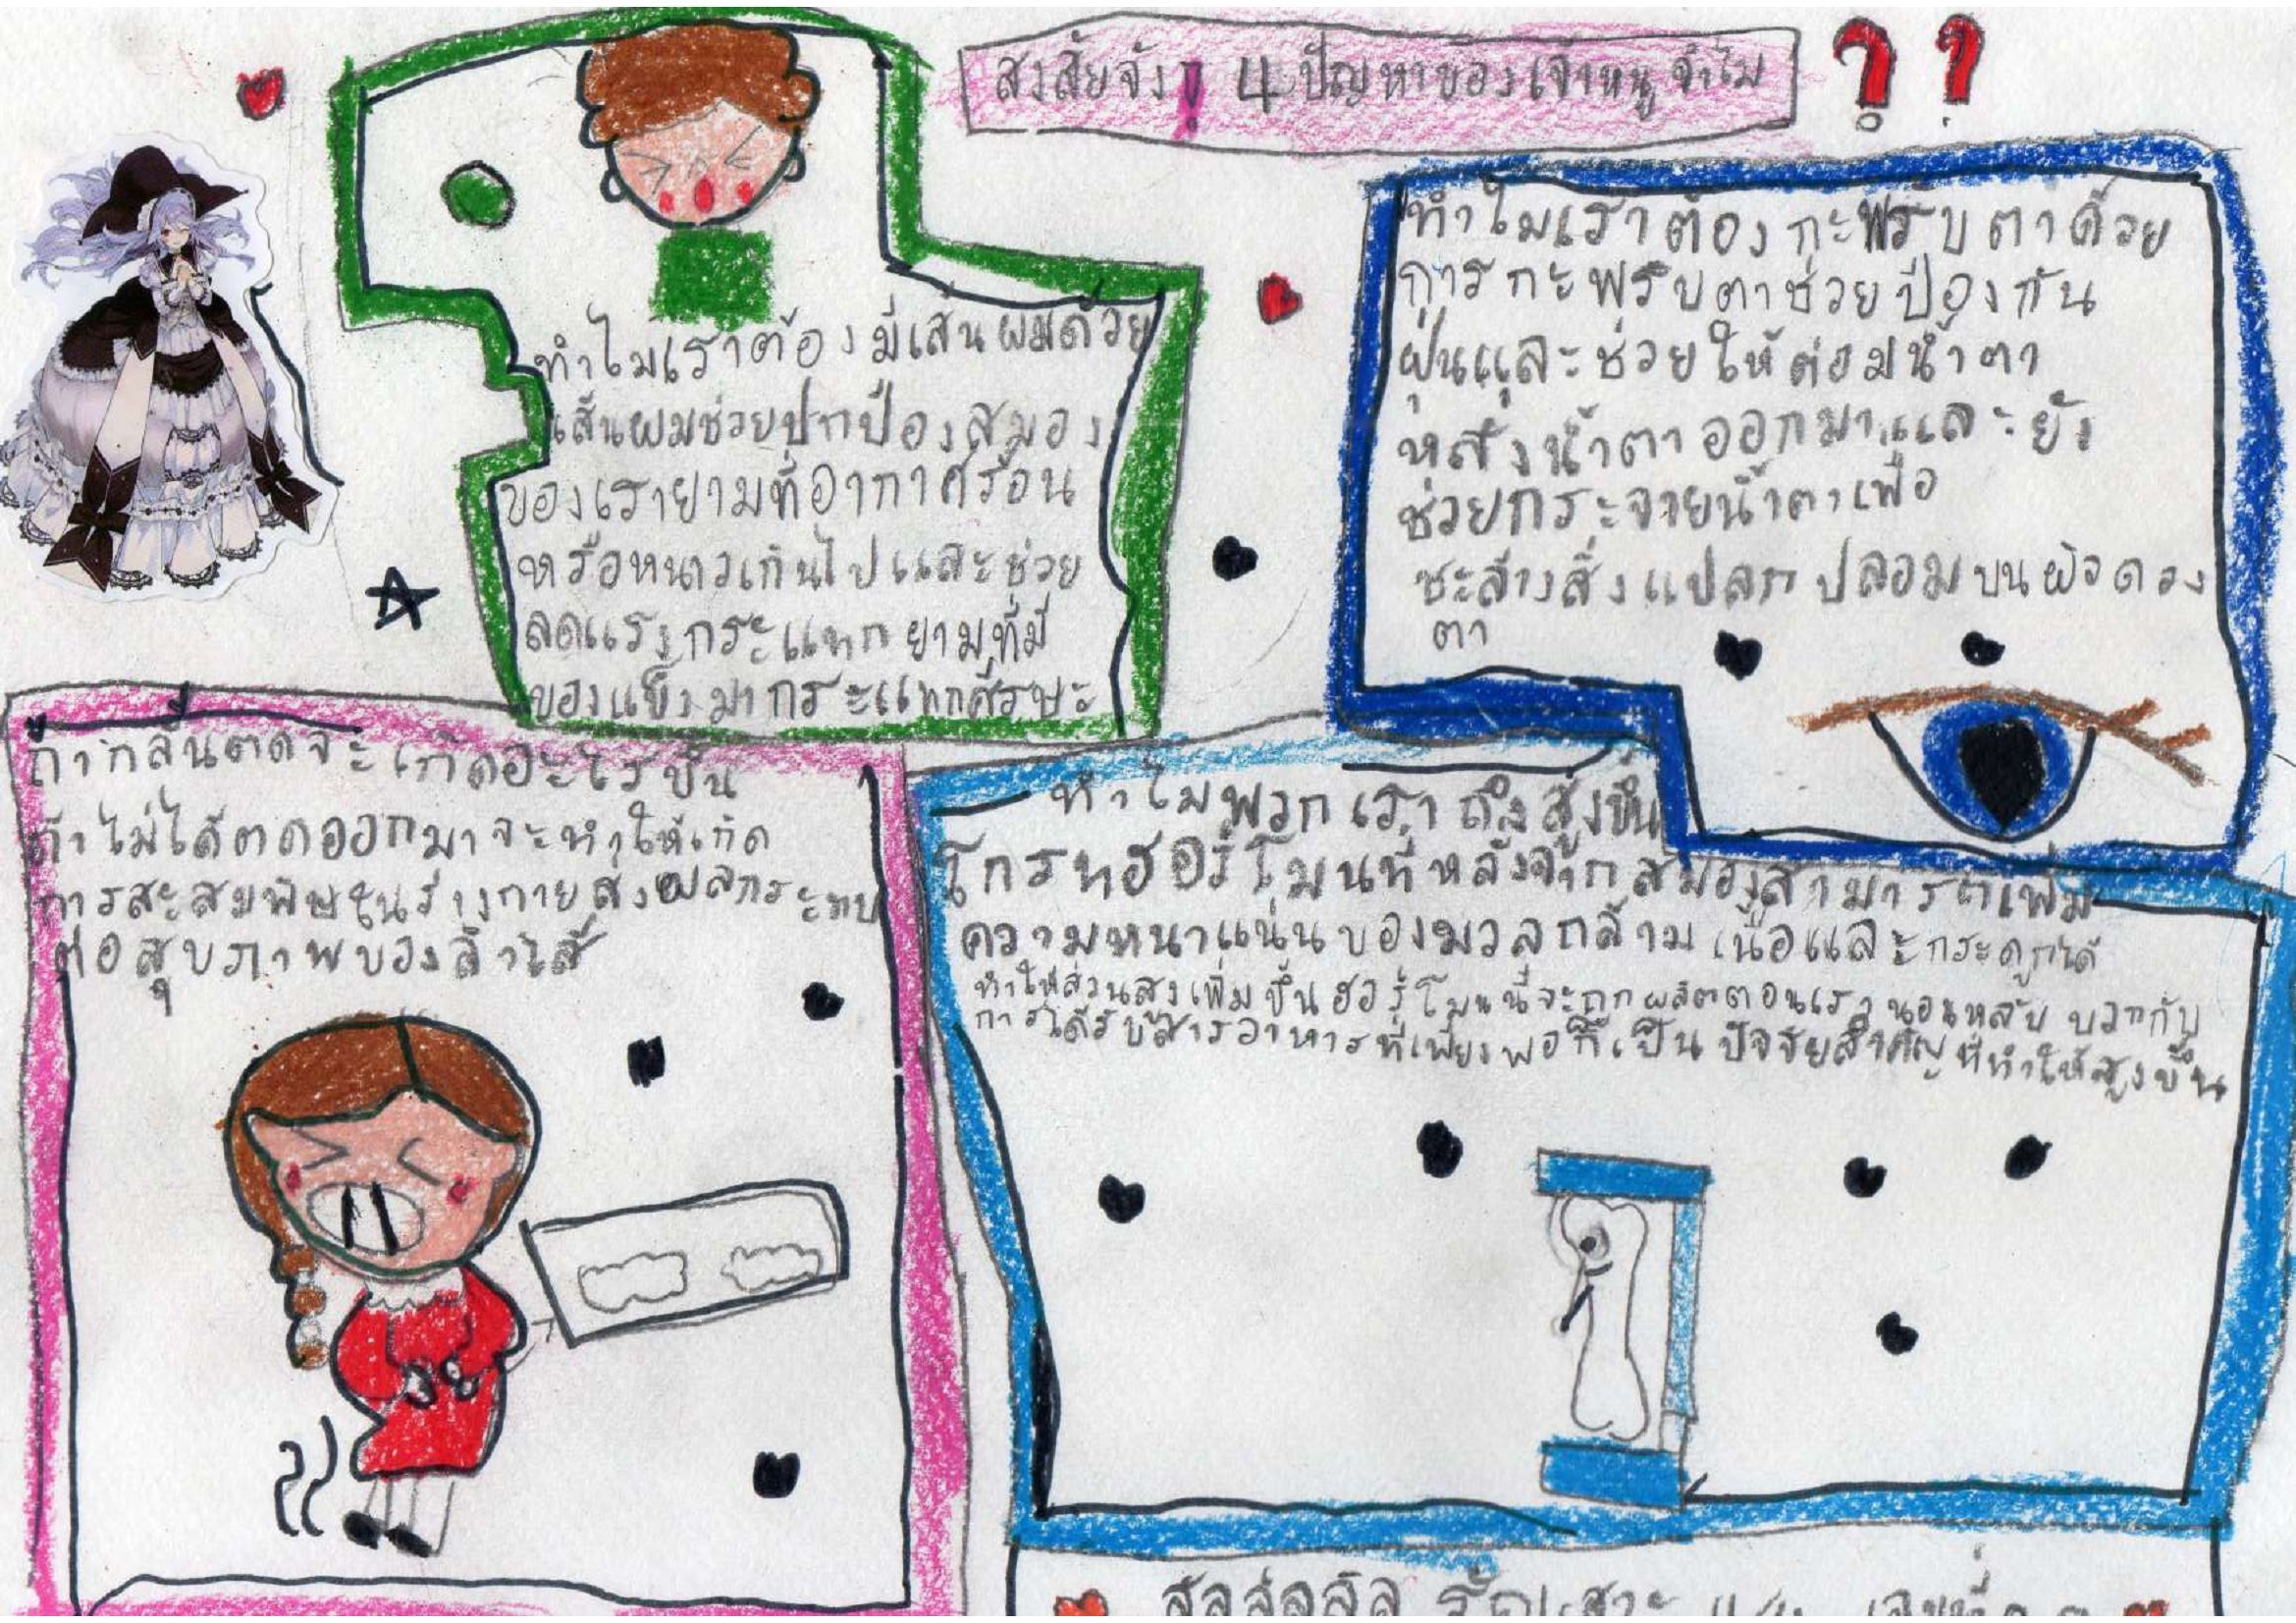 สงสัยจัง 4 ปัญหาของเจ้าหนูจำไม ??
ทำไมเราต้องมีเส้นผมด้วย
เส้นผมช่วยปกป้องสมอง
ของเรายามที่อากาศร้อน
หรือหนาวเกินไปและช่วย
ลดแรงกระแทกยามที่มี
ของแข็งมากระแทกศีรษะ
ทำไมเราต้องกะพริบตาด้วย
การกะพริบตาช่วยป้องกัน
ฝุ่นและช่วยให้ต่อมน้ำตา
หลั่งน้ำตาออกมาและยัง
ช่วยกระจายน้ำตาเพื่อ
ชะล้างสิ่งแปลกปลอมบนผิวดวง
ตา
ถ้ากลั้นตดจะเกิดอะไรขึ้น
ถ้าไม่ได้ตดออกมาจะทำให้เกิด
การสะสมพิษในร่างกายส่งผลกระทบ
ต่อสุขภาพของลำไส้
ทำไมพวกเราถึงสูงขึ้น
โกรทฮอร์โมนที่หลั่งจากสมองสามารถเพิ่ม
ความหนาแน่นของมวลกล้ามเนื้อและกระดูกได้
ทำให้ส่วนสูงเพิ่มขึ้นฮอร์โมนนี้จะถูกผลิตตอนเรานอนหลับ บวกกับ
การได้รับสารอาหารที่เพียงพอก็เป็นปัจจัยสำคัญที่ทำให้สูงขึ้น